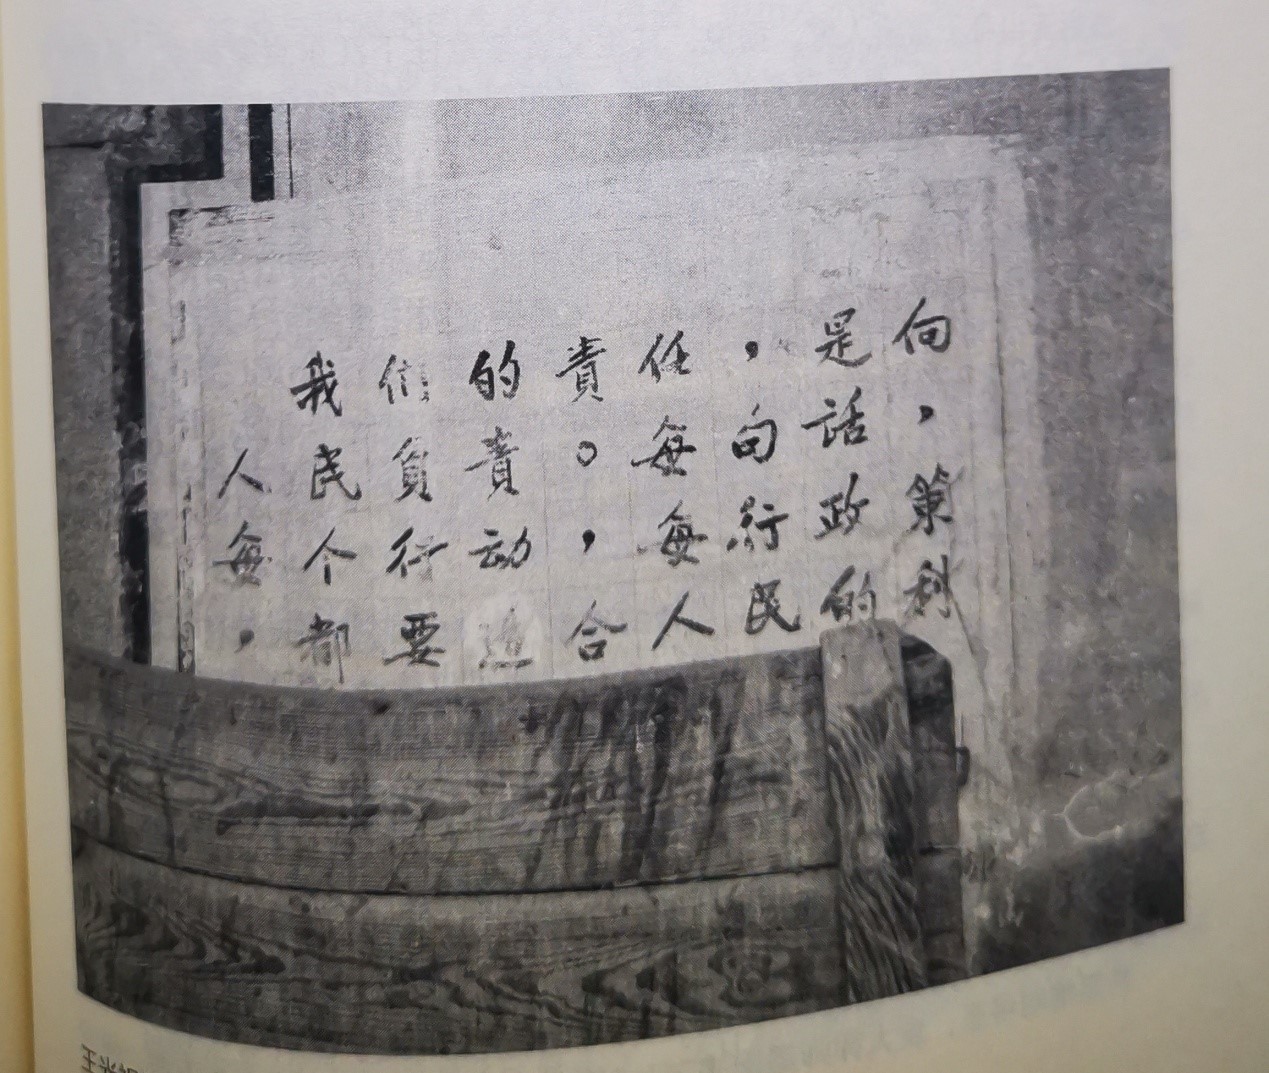 我們的責任，是向
人民負責。每句話，
每个行动，每行政策
，都要適合人民的利